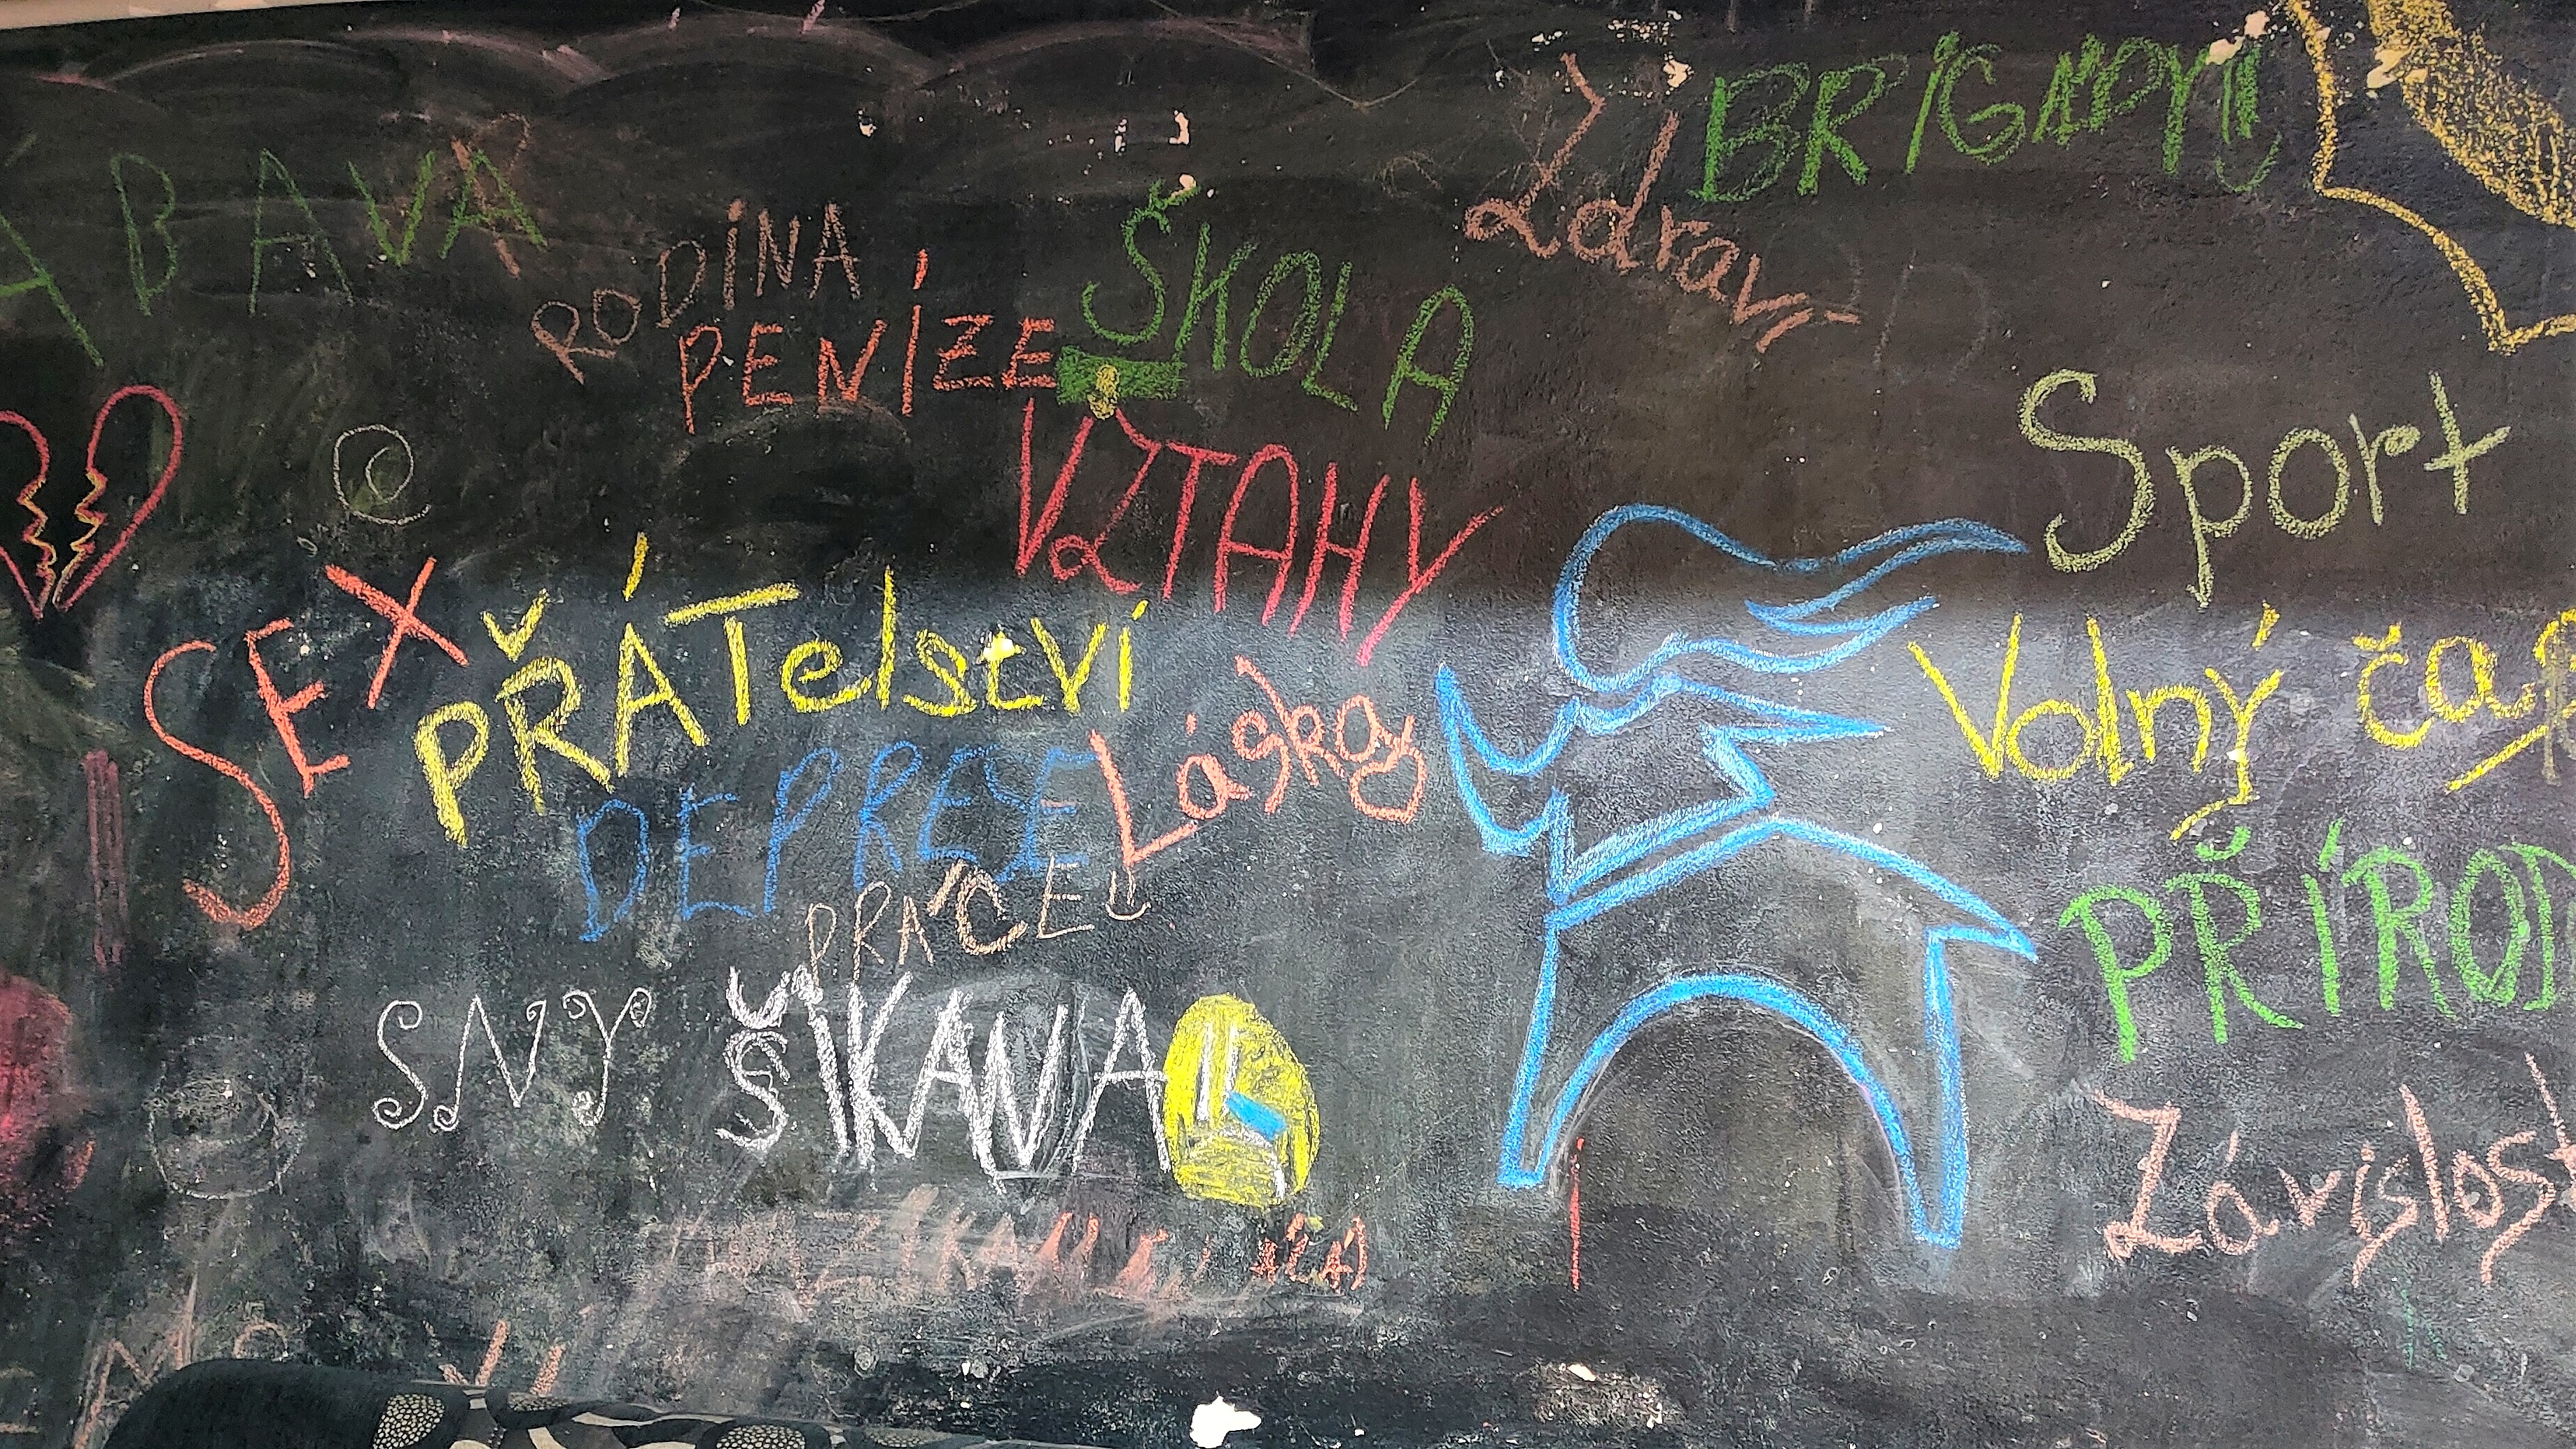 ÁBAVA
BRIGÁDY
Zdraví
RODINA
ŠKOLA
PENÍZE
Sport
VZTAHY
SEX
PŘÁTelství
Volný čas
Láska
DEPRESE
PRÁCE
PŘÍROD
SNY
ŠIKANA
Závislost